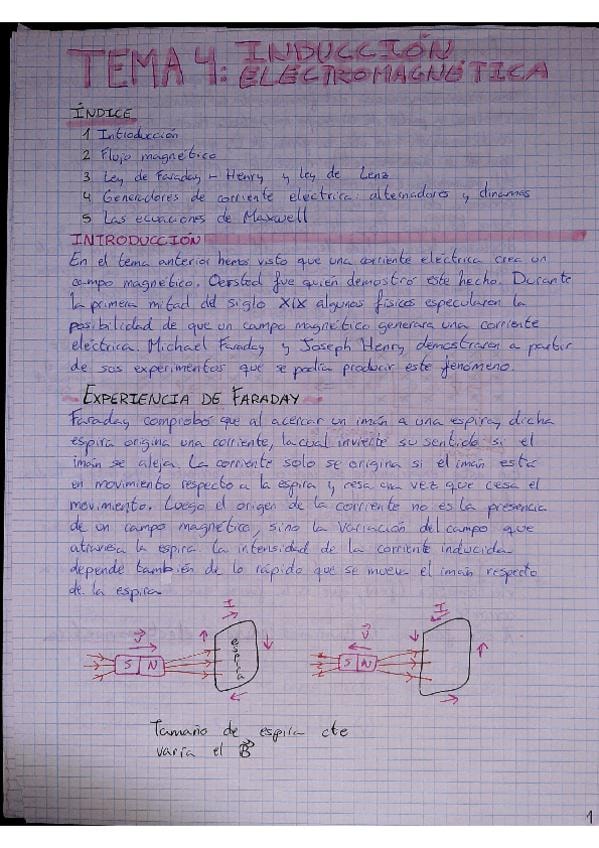 TEMA 4: INDUCCIÓN
ELECTROMAGNÉTICA
ÍNDICE
1 Introducción
2 Flujo magnético
3 Ley de Faraday - Henry y ley de Lenz
4 Generadores de corriente eléctrica: alternadores y dinamos
5 Las ecuaciones de Maxwell
INTRODUCCIÓN
En el tema anterior hemos visto que una corriente eléctrica crea un
campo magnético. Oersted fue quién demostró este hecho. Durante
la primera mitad del siglo XIX algunos físicos especularon la
posibilidad de que un campo magnético generara una corriente
eléctrica. Michael Faraday y Joseph Henry demostraron a partir
de sus experimentos que se podía producir este fenómeno.
- EXPERIENCIA DE FARADAY
Faraday comprobó que al acercar un imán a una espira, dicha
espira origina una corriente, la cual invierte su sentido si el
imán se aleja. La corriente solo se origina si el imán está
en movimiento respecto a la espira y cesa una vez que cesa el
movimiento. Luego el origen de la corriente no es la presencia
de un campo magnético, sino la variación del campo que
atraviesa la espira. La intensidad de la corriente inducida
depende también de lo rápido que se mueva el imán respecto
de la espira
I
v
S N
espira
I
v
S N
Tamaño de espira cte
varía el B
1